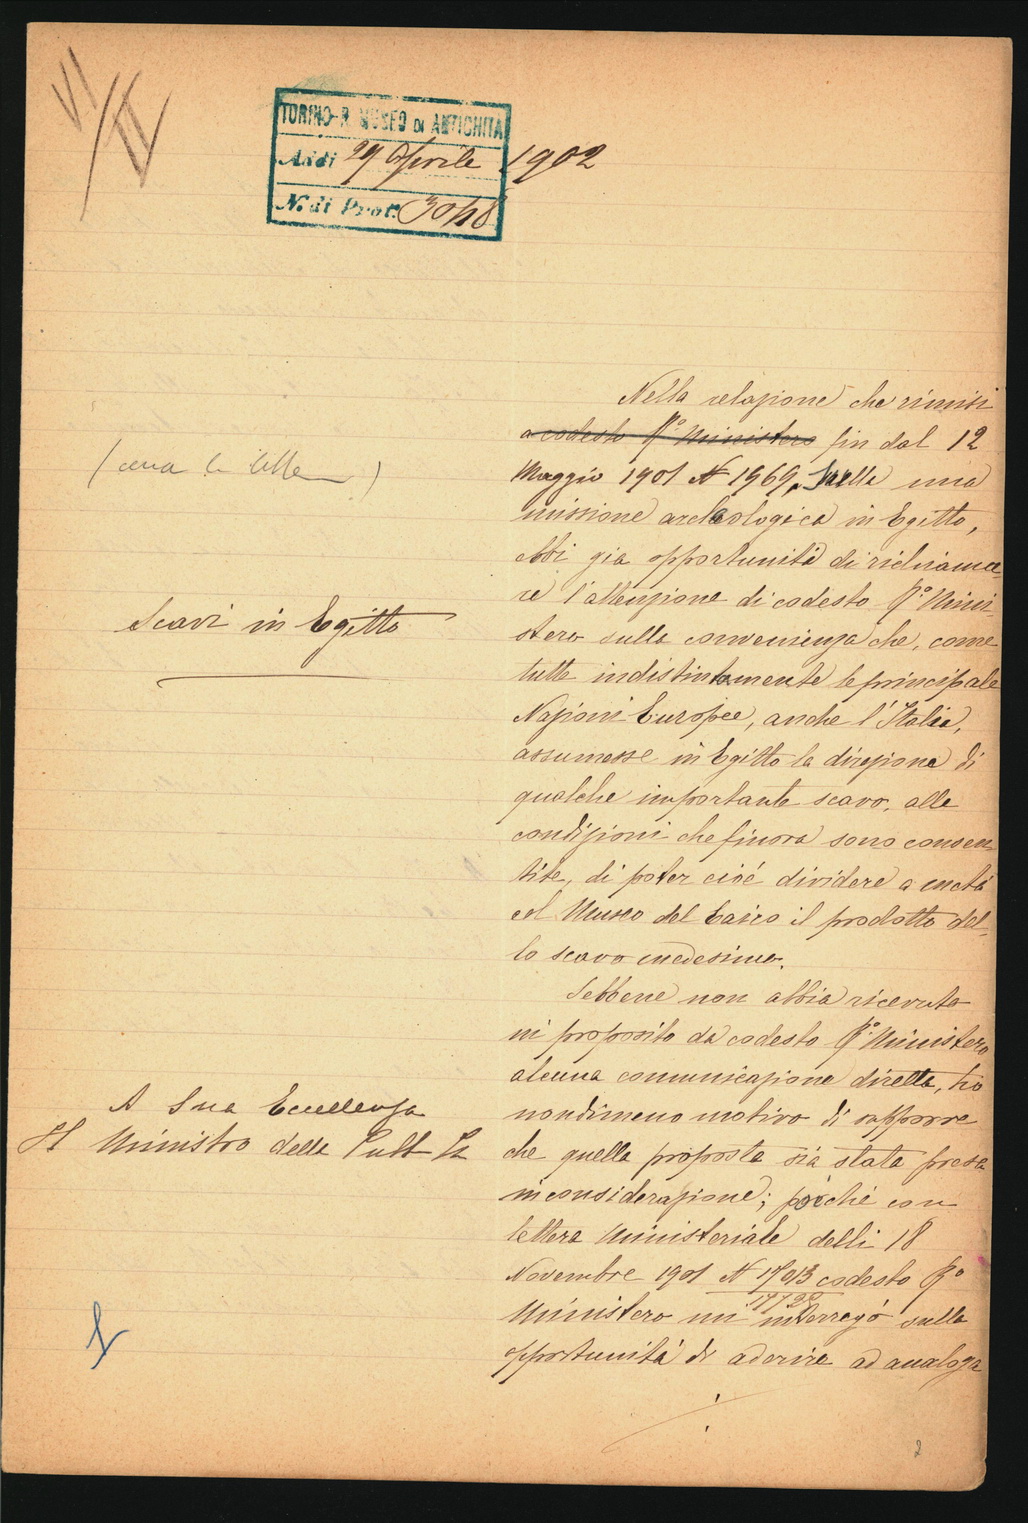 VI/II
TORINO-R. MUSEO DI ANTICHITÀ
Addì 29 Aprile 1902
N. di Prot. 3048
Nella relazione che rimisi
a codesto R.º Ministero fin dal 12
Maggio 1901 N 1969, sulla una
missione archeologica in Egitto,
ebbi già opportunità di richiama-
re l'attenzione di codesto R.º Mini-
stero sulla convenienza che, come
tutte indistintamente le principale
Nazioni Europee, anche l'Italia,
assumesse in Egitto la direzione di
qualche importante scavo, alle
condizioni che finora sono consen-
tite, di poter cioè dividere a metà
col Museo del Cairo il prodotto del-
lo scavo medesimo.
Sebbene non abbia ricevuta
in proposito da codesto R.º Ministero
alcuna comunicazione diretta, ho
nondimeno motivo di supporre
che quella proposta sia stata presa
in considerazione; poichè con
lettera Ministeriale delli 18
Novembre 1901 N 17013 codesto R.º
Ministero mi interrogò sulla
opportunità di aderire ad analoga
Scavi in Egitto
A Sua Eccellenza
Il Ministro della Pubb. Is.
2